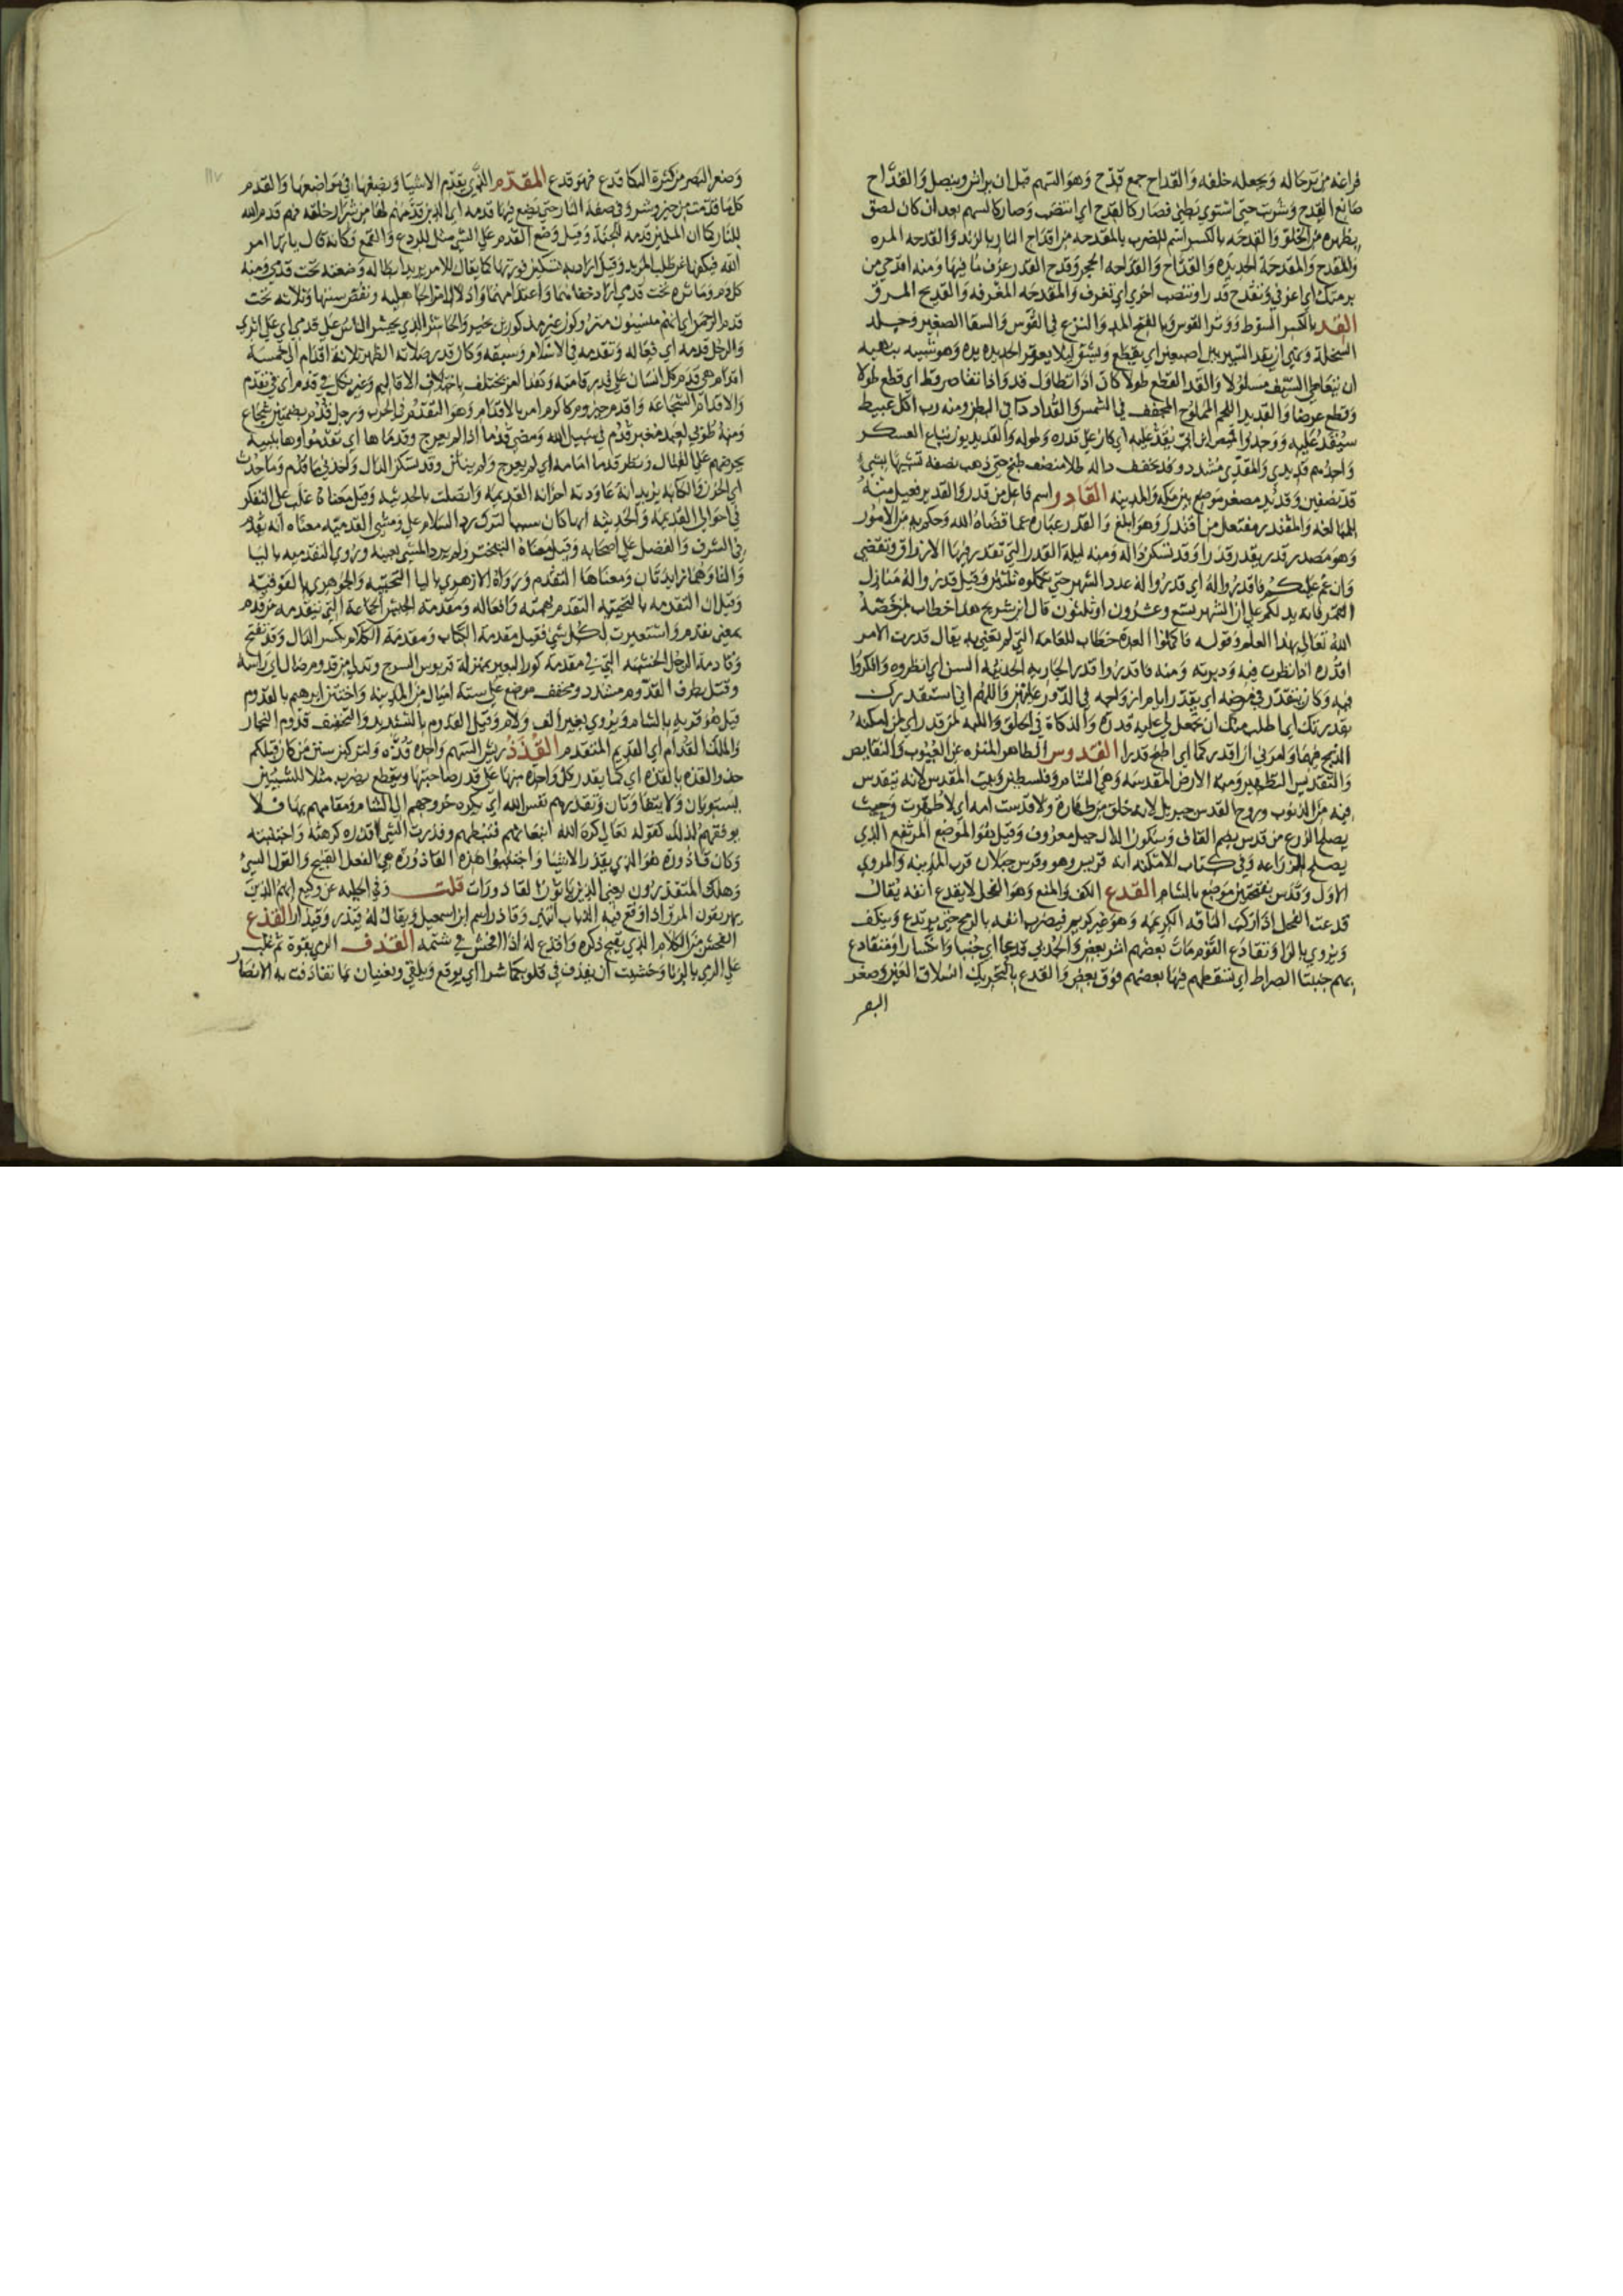 فراغه من ترحاله ويجعله خلفه والقداح جمع قدح وهو السهم قبل ان يراش وينصل والقداح
صانع القدح وشربت حتى استوي بطني فصار كالقدح اي انتصب وصار كالسهم بعد ان كان لصق
بظهره من الخلو والقدحه بالكسر اسم للضرب بالمقدحه من اقداح النار بالزند والقدحه المره
والمقدح والمقدحة الحديده والقداح والقداحه الحجر وقدح القدر غرف ما فيها ومنه اقدحي من
برمتك اي اغرفي وتقدح قدرا وتنصب اخري اي تغرف والمقدحه المغرفه والقديح المرق
القد بالكسر السوط ووتر القوس وبالفتح المد والنزع في القوس والسقا الصغير وجلد
السخلة ونهي ان يقد السير بين اصبعين اي يقطع ويشق ليلا يعقر الحديده يده وهو شبيه بنهيه
ان يتعاطي السيف مسلولا والقد القطع طولا كان اذا تطاول قد واذا تقاصر قط اي قطع طولا
وقطع عرضا والقديد اللحم المملوح المجفف في الشمس والقداد دا في البطن ومنه رب اكل عبيط
سيقد عليه ووجدوا قميص ابن ابي يقد عليه اي كان علي قدره وطوله والقديديون تباع العسكر
واحدهم قديدي والمقدي مشدد وقد يخفف داله طلا منصف طبخ حتي ذهب نصفه تشبيها بشي
قد بنصفين وقديد مصغر موضع بين مكه والمدينه القادر اسم فاعل من قدر والقدير فعيل منه
للمبالغه والمقتدر مفتعل من اقتدر وهو ابلغ والقدر عبارة عما قضاه الله وحكم به من الامور
وهو مصدر قدر يقدر قدرا وقد تسكن داله ومنه ليلة القدر التي تقدر فيها الارزاق وتقضي
وان غم عليكم فاقدروا له اي قدروا له عدد الشهر حتي تكملوه ثلثين وقيل قدروا له منازل
القمر فانه يدلكم علي ان الشهر تسع وعشرون او ثلثون قال ابن شريح هذا خطاب لمن خصه
الله تعالي بهذا العلم وقوله فاكملوا العدة خطاب للعامه التي لم تعن به يقال قدرت الامر
اقدره اذا نظرت فيه ودبرته ومنه فاقدروا قدر الجاريه الحديثه السن اي انظروه وافكروا
فيه وكان يتقدر في مرضه اي يقدر ايام ازواجه في الدور عليهن واللهم اني استقدرك
بقدرتك اي اطلب منك ان تجعل لي عليه قدرة والذكاة في الحلق واللبه لمن قدر اي لمن امكنه
الذبح فيهما وامرني ان اقدر لحما اي اطبخ قدرا القدوس الطاهر المنزه عن العيوب والنقايص
والتقديس التطهير ومنه الارض المقدسه وهي الشام وفلسطين وبيت المقدس لانه يتقدس
فيه من الذنوب وروح القدس جبريل لانه خلق من طهارة ولا قدست امه اي لا طهرت وحيث
يصلح الزرع من قدس بضم القاف وسكون الدال جبل معروف وقيل هو الموضع المرتفع الذي
يصلح للزراعه وفي كتاب الامكنه انه قريس وهو وقرس جبلان قرب المدينه والمروي
الاول وقدس بفتحتين موضع بالشام القدع الكف والمنع وهو الفحل لا يقدع انفه يقال
قدعت الفحل اذا اركب الناقه الكريمه وهو غير كريم فيضرب انفه بالرمح حتي يرتدع وينكف
ويروي بالرا وتقادع القوم مات بعضهم اثر بعض
بهم جنبتا الصراط اي تسقطهم فيها بعضهم فوق بعض والقدع بالتحريك انسلاق العين وضعف
البصر
وضعف البصر من كثرة البكا قدع فهو قدع المقدم الذي يقدم الاشيا ويضعها في مواضعها والقدم
كل ما قدمت من خير وشر وفي صفة النار حتي يضع فيها قدمه اي الذين قدمهم لها من شرار خلقه فهم قدم الله
للنار كما ان المسلمين قدمه للجنة وقيل وضع القدم علي الشي مثل للردع والقمع وكانه قال ياتيها امر
الله فيكفها عن طلب المزيد وقيل اراد به تسكين فورتها كما يقال للامر يريد ابطاله وضعته تحت قدمي ومنه
كل دم وماثرة تحت قدمي اراد اخفاءها واعدامها واذلال امر الجاهليه ونقض سنتها وثلاثه تحت
قدم الرحمن اي انهم منسيون متروكون غير مذكورين بخير والحاشر الذي يحشر الناس علي قدمي اي علي اثري
والرجل وقدمه اي فعاله وتقدمه في الاسلام وسبقه وكان قدر صلاته الظهر ثلاثة اقدام الي خمسة
اقدام هي قدم كل انسان علي قدر قامته وهذا امر يختلف باختلاف الاقاليم وغير نكل في قدم اي في تقدم
والاقدام الشجاعه واقدم حيزوم زكاكرم امر بالاقدام وهو التقدم في الحرب ورجل قدم بضمتين شجاع
ومنه طوبي لعبد مغبر قدم في سبيل الله ومضي قدما اذا لم يعرج وقدما ها اي تقدموا وها تنبيه
يحرضهم علي القتال ونظر قدما امامه اي لم يعرج ولم ينثن وقد تسكن الدال واخذني ما قدم وما حدث
اي الحزن والكابه يريد انه عاودته احزانه القديمه واتصلت بالحديثه وقيل معناه غلب علي التفكر
في احوالي القديمه والحديثه ايها كان سببا لترك رد السلام علي ومشي القدميه معناه انه تقدم
في الشرف والفضل علي اصحابه وقيل معناه التبختر ولم يرد المشي بعينه وروي التقدميه باليا
والتا وهما زايدتان ومعناها التقدم ورواه الازهري باليا التحتيه والجوهري بالفوقيه
وقيل ان التقدميه بالتحتيه التقدم بهمته وافعاله ومقدمة الجيش الجماعة التي تتقدمه من قدم
بمعني تقدم واستعيرت لكل شي فقيل مقدمة الكتاب ومقدمة الكلام بكسر الدال وقد تفتح
وقادمة الرحل الخشبه التي في مقدمة كور البعير بمنزلة قربوس السرج وتدلي من قدوم ضال اي راسه
وقتل بطرف القدوم مشدد ومخفف موضع علي ستة اميال من المدينه واختتن ابرهيم بالقدوم
قيل هو قريه بالشام ويروي بغير الف ولام وقيل القدوم بالتشديد والتخفيف قدوم النجار
والملك القدام اي القديم المتقدم القذذ ريش السهم واحده قذه ولتركبن سنن من كان قبلكم
حذو القذه بالقذه اي كما يقدر كل واحده منها علي قدر صاحبتها ويقطع يضرب مثلا للشيئين
يستويان ولا يتفاوتان وتقذرهم نفس الله اي يكره خروجهم الي الشام ومقامهم بها فلا
يوفقهم لذلك كقوله تعالي كره الله انبعاثهم فثبطهم وقذرت الشي اقذره كرهته واجتنبته
وكان قاذورة هو الذي يقذر الاشيا واجتنبوا هذه القاذورة هي الفعل القبيح والقول السيئ
وهلك المتقذرون يعني الذين ياتون القاذورات قلت وفي الحليه عن وكيع انهم الذين
يهريقون المرق اذا وقع فيه الذباب انتهي وقاذر اسم ابن اسمعيل ويقال له قيذر وقيذار القذع
الفحش من الكلام الذي يقبح ذكره واقذع له اذا افحش في شتمه القذف الرمي بقوة ثم غلب
علي الرمي بالزنا وخشيت ان يقذف في قلوبكما شرا اي يوقع ويلقي وتغنيان بما تقاذفت به الانصار